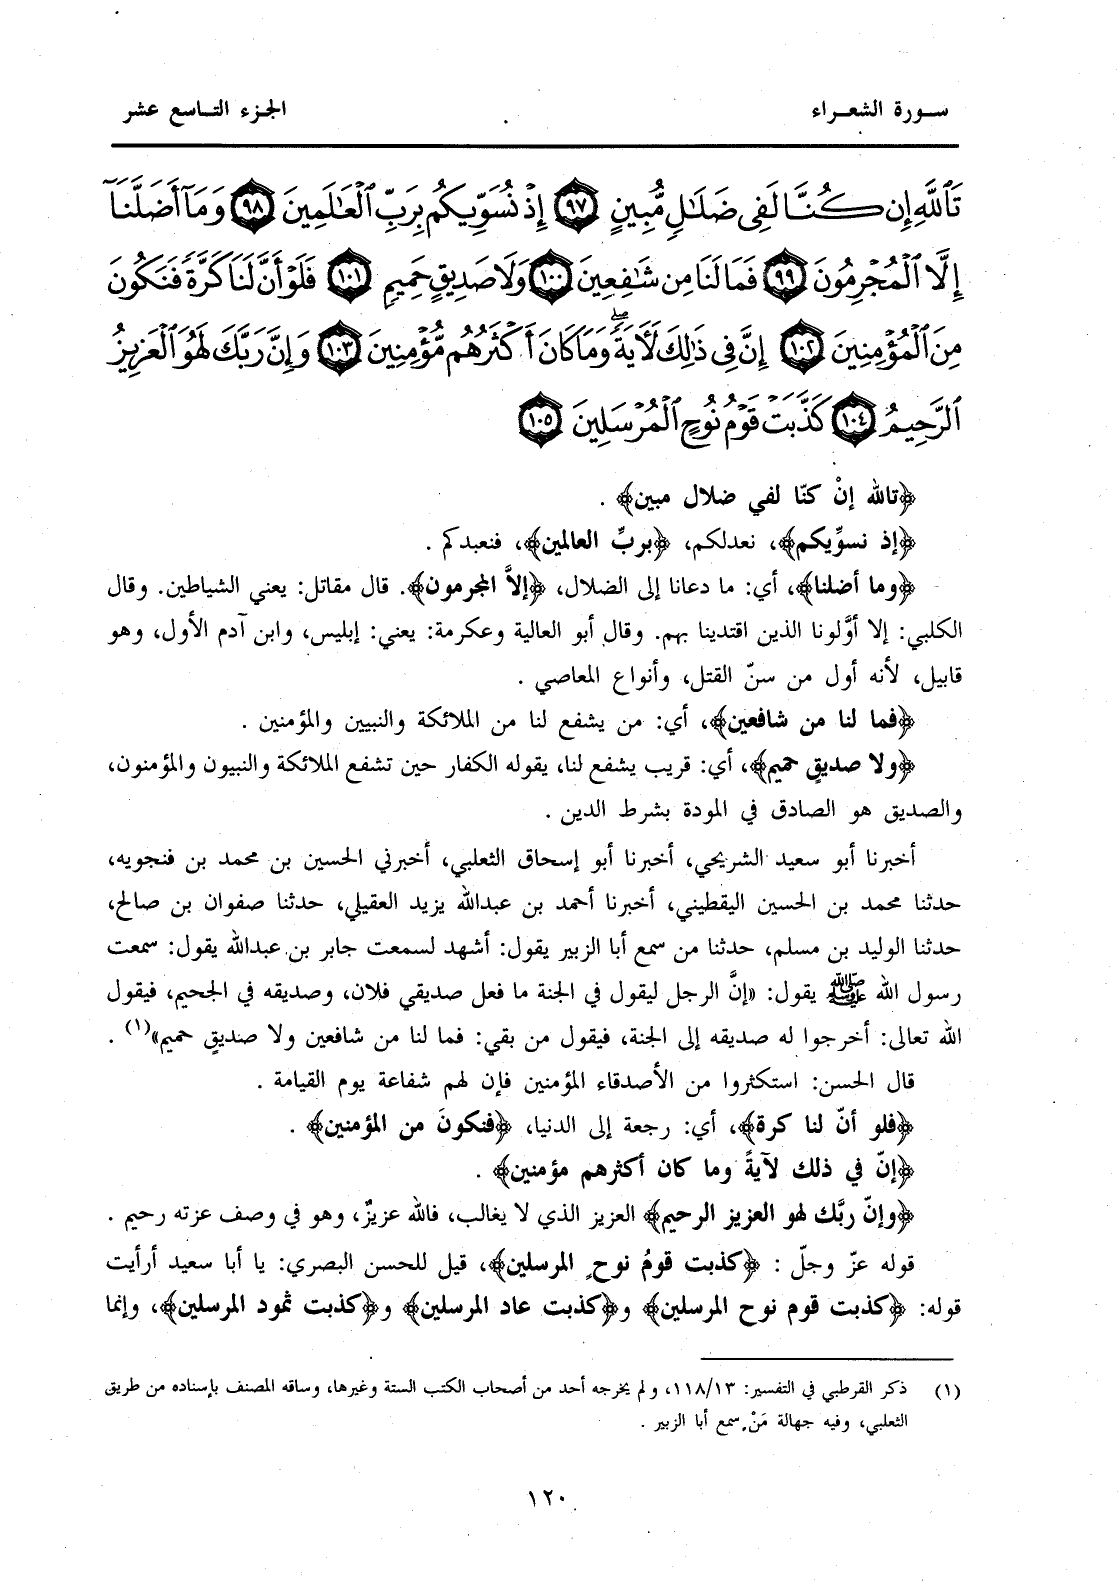 سورة الشعراء
الجزء التاسع عشر
تَٱللَّهِ إِن كُنَّا لَفِى ضَلَٰلٍ مُّبِينٍ ٩٧ إِذْ نُسَوِّيكُم بِرَبِّ ٱلْعَٰلَمِينَ ٩٨ وَمَآ أَضَلَّنَآ
إِلَّا ٱلْمُجْرِمُونَ ٩٩ فَمَا لَنَا مِن شَٰفِعِينَ ١٠٠ وَلَا صَدِيقٍ حَمِيمٍ ١٠١ فَلَوْ أَنَّ لَنَا كَرَّةً فَنَكُونَ
مِنَ ٱلْمُؤْمِنِينَ ١٠٢ إِنَّ فِى ذَٰلِكَ لَـَٔايَةً ۖ وَمَا كَانَ أَكْثَرُهُم مُّؤْمِنِينَ ١٠٣ وَإِنَّ رَبَّكَ لَهُوَ ٱلْعَزِيزُ
ٱلرَّحِيمُ ١٠٤ كَذَّبَتْ قَوْمُ نُوحٍ ٱلْمُرْسَلِينَ ١٠٥
﴿تالله إنْ كنّا لفي ضلال مبين﴾ .
﴿إذ نسوِّيكم﴾، نعدلكم، ﴿بربِّ العالمين﴾، فنعبدكم .
﴿وما أضلنا﴾، أي: ما دعانا إلى الضلال، ﴿إلاَّ المجرمون﴾. قال مقاتل: يعني الشياطين. وقال
الكلبي: إلا أوَّلونا الذين اقتدينا بهم. وقال أبو العالية وعكرمة: يعني: إبليس، وابن آدم الأول، وهو
قابيل، لأنه أول من سنّ القتل، وأنواع المعاصي .
﴿فما لنا من شافعين﴾، أي: من يشفع لنا من الملائكة والنبيين والمؤمنين .
﴿ولا صديقٍ حميم﴾، أي: قريب يشفع لنا، يقوله الكفار حين تشفع الملائكة والنبيون والمؤمنون،
والصديق هو الصادق في المودة بشرط الدين .
أخبرنا أبو سعيد الشريحي، أخبرنا أبو إسحاق الثعلبي، أخبرني الحسين بن محمد بن فنجويه،
حدثنا محمد بن الحسين اليقطيني، أخبرنا أحمد بن عبدالله يزيد العقيلي، حدثنا صفوان بن صالح،
حدثنا الوليد بن مسلم، حدثنا من سمع أبا الزبير يقول: أشهد لسمعت جابر بن عبدالله يقول: سمعت
رسول الله ﷺ يقول: «إنَّ الرجل ليقول في الجنة ما فعل صديقي فلان، وصديقه في الجحيم، فيقول
الله تعالى: أخرجوا له صديقه إلى الجنة، فيقول من بقي: فما لنا من شافعين ولا صديقٍ حميم»(١) .
قال الحسن: استكثروا من الأصدقاء المؤمنين فإن لهم شفاعة يوم القيامة .
﴿فلو أنّ لنا كرة﴾، أي: رجعة إلى الدنيا، ﴿فنكونَ من المؤمنين﴾ .
﴿إنّ في ذلك لآيةً وما كان أكثرهم مؤمنين﴾ .
﴿وإنّ ربَّك لهو العزيز الرحيم﴾ العزيز الذي لا يغالب، فالله عزيزٌ، وهو في وصف عزته رحيم .
قوله عزّ وجلّ : ﴿كذبت قومُ نوحٍ المرسلين﴾، قيل للحسن البصري: يا أبا سعيد أرأيت
قوله: ﴿كذبت قوم نوح المرسلين﴾ و﴿كذبت عاد المرسلين﴾ و﴿كذبت ثمود المرسلين﴾، وإنما
(١) ذكر القرطبي في التفسير: ١١٨/١٣، و لم يخرجه أحد من أصحاب الكتب الستة وغيرها، وساقه المصنف بإسناده من طريق
الثعلبي، وفيه جهالة مَنْ سمع أبا الزبير .
١٢٠